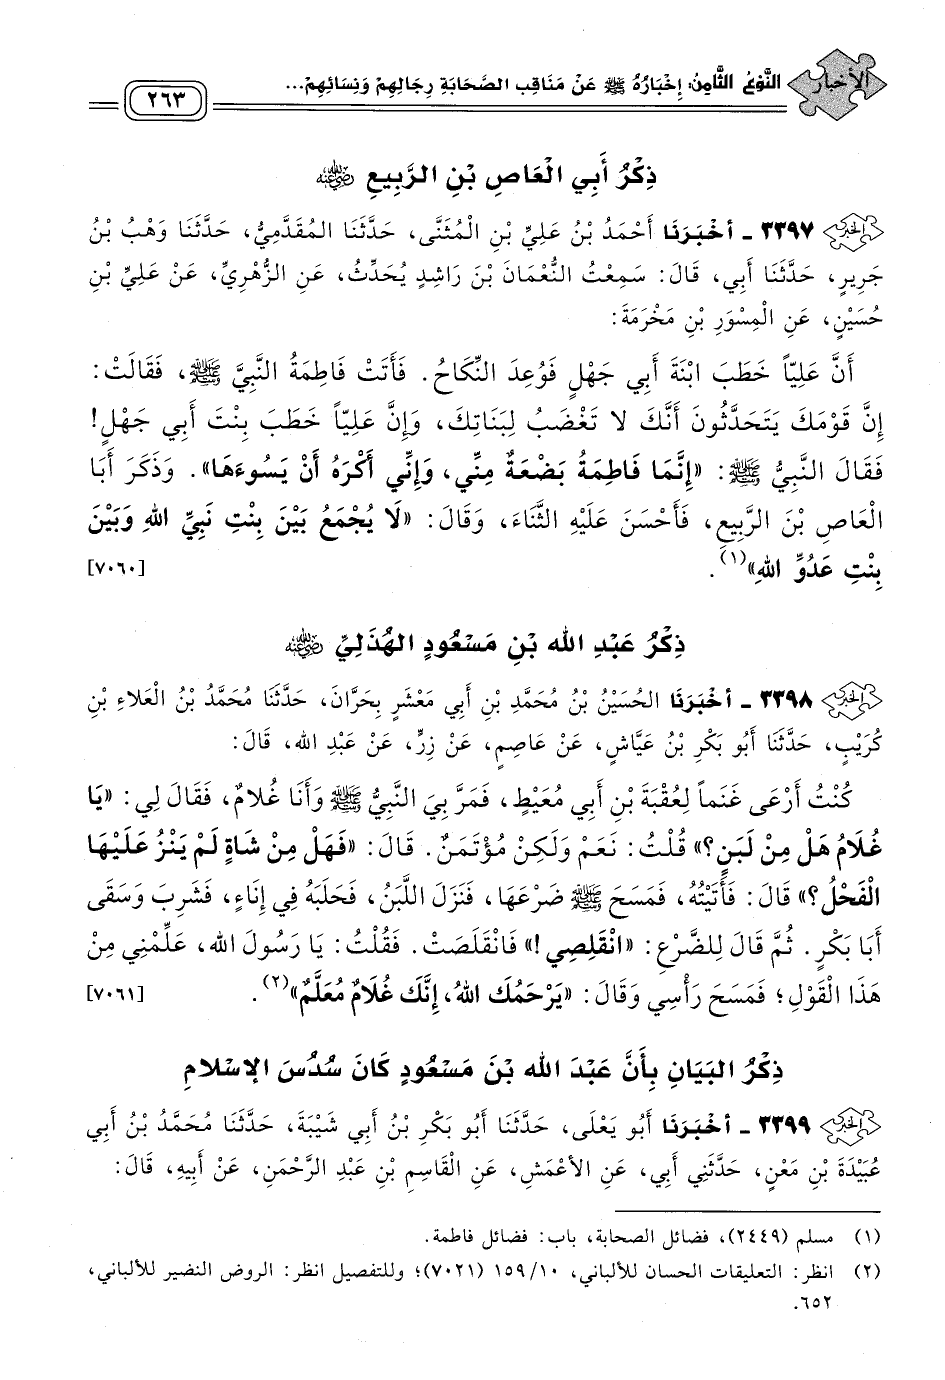 الأخبار
النَّوْعُ الثَّامِنُ: إِخْبَارُهُ ﷺ عَنْ مَنَاقِبِ الصَّحَابَةِ رِجَالِهِمْ وَنِسَائِهِمْ...
٢٦٣
ذِكْرُ أَبِي الْعَاصِ بْنِ الرَّبِيعِ رضي الله عنه
٣٣٩٧ - أخْبَرَنَا أَحْمَدُ بْنُ عَلِيِّ بْنِ الْمُثَنَّى، حَدَّثَنَا المُقَدَّمِيُّ، حَدَّثَنَا وَهْبُ بْنُ
جَرِيرٍ، حَدَّثَنَا أَبِي، قَالَ: سَمِعْتُ النُّعْمَانَ بْنَ رَاشِدٍ يُحَدِّثُ، عَنِ الزُّهْرِيِّ، عَنْ عَلِيِّ بْنِ
حُسَيْنٍ، عَنِ الْمِسْوَرِ بْنِ مَخْرَمَةَ:
أَنَّ عَلِيّاً خَطَبَ ابْنَةَ أَبِي جَهْلٍ فَوُعِدَ النِّكَاحُ. فَأَتَتْ فَاطِمَةُ النَّبِيَّ ﷺ، فَقَالَتْ:
إِنَّ قَوْمَكَ يَتَحَدَّثُونَ أَنَّكَ لا تَغْضَبُ لِبَنَاتِكَ، وَإِنَّ عَلِيّاً خَطَبَ بِنْتَ أَبِي جَهْلٍ!
فَقَالَ النَّبِيُّ ﷺ: «إِنَّمَا فَاطِمَةُ بَضْعَةٌ مِنِّي، وَإِنِّي أَكْرَهُ أَنْ يَسُوءَهَا». وَذَكَرَ أَبَا
الْعَاصِ بْنَ الرَّبِيعِ، فَأَحْسَنَ عَلَيْهِ الثَّنَاءَ، وَقَالَ: «لَا يُجْمَعُ بَيْنَ بِنْتِ نَبِيِّ اللهِ وَبَيْنَ
بِنْتِ عَدُوِّ اللهِ»(١). [٧٠٦٠]
ذِكْرُ عَبْدِ الله بْنِ مَسْعُودٍ الهُذَلِيِّ رضي الله عنه
٣٣٩٨ - أخْبَرَنَا الحُسَيْنُ بْنُ مُحَمَّدِ بْنِ أَبِي مَعْشَرٍ بِحَرَّانَ، حَدَّثَنَا مُحَمَّدُ بْنُ الْعَلاءِ بْنِ
كُرَيْبٍ، حَدَّثَنَا أَبُو بَكْرِ بْنُ عَيَّاشٍ، عَنْ عَاصِمٍ، عَنْ زِرٍّ، عَنْ عَبْدِ الله، قَالَ:
كُنْتُ أَرْعَى غَنَماً لِعُقْبَةَ بْنِ أَبِي مُعَيْطٍ، فَمَرَّ بِيَ النَّبِيُّ ﷺ وَأَنَا غُلَامٌ، فَقَالَ لِي: «يَا
غُلَامُ هَلْ مِنْ لَبَنٍ؟» قُلْتُ: نَعَمْ وَلَكِنْ مُؤْتَمَنٌ. قَالَ: «فَهَلْ مِنْ شَاةٍ لَمْ يَنْزُ عَلَيْهَا
الْفَحْلُ؟» قَالَ: فَأَتَيْتُهُ، فَمَسَحَ ﷺ ضَرْعَهَا، فَنَزَلَ اللَّبَنُ، فَحَلَبَهُ فِي إِنَاءٍ، فَشَرِبَ وَسَقَى
أَبَا بَكْرٍ. ثُمَّ قَالَ لِلضَّرْعِ: «انْقَلِصِي!» فَانْقَلَصَتْ. فَقُلْتُ: يَا رَسُولَ الله، عَلِّمْنِي مِنْ
هَذَا الْقَوْلِ؛ فَمَسَحَ رَأْسِي وَقَالَ: «يَرْحَمُكَ اللهُ، إِنَّكَ غُلَامٌ مُعَلَّمٌ»(٢). [٧٠٦١]
ذِكْرُ البَيَانِ بِأَنَّ عَبْدَ الله بْنَ مَسْعُودٍ كَانَ سُدُسَ الإِسْلامِ
٣٣٩٩ - أخْبَرَنَا أَبُو يَعْلَى، حَدَّثَنَا أَبُو بَكْرِ بْنُ أَبِي شَيْبَةَ، حَدَّثَنَا مُحَمَّدُ بْنُ أَبِي
عُبَيْدَةَ بْنِ مَعْنٍ، حَدَّثَنِي أَبِي، عَنِ الأَعْمَشِ، عَنِ الْقَاسِمِ بْنِ عَبْدِ الرَّحْمَنِ، عَنْ أَبِيهِ، قَالَ:
(١) مسلم (٢٤٤٩)، فضائل الصحابة، باب: فضائل فاطمة.
(٢) انظر: التعليقات الحسان للألباني، ١٥٩/١٠ (٧٠٢١)؛ وللتفصيل انظر: الروض النضير للألباني،
٦٥٢.